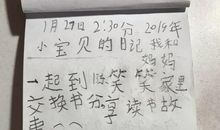 1月27日2:30分 2019年
小宝贝的日记 我和
妈妈
一起到嘻笑笑家里
交换书分享读书故
事~~